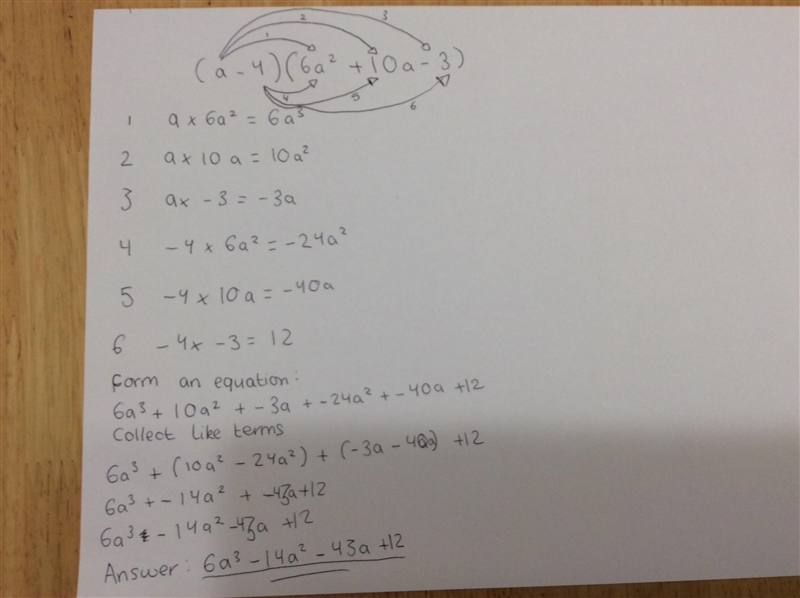 1 2 3
(a - 4)(6a² + 10a - 3)
4 5 6
1 a × 6a² = 6a³
2 a × 10a = 10a²
3 a × -3 = -3a
4 -4 × 6a² = -24a²
5 -4 × 10a = -40a
6 -4 × -3 = 12
Form an equation:
6a³ + 10a² + -3a + -24a² + -40a +12
Collect like terms
6a³ + (10a² - 24a²) + (-3a - 40a) +12
6a³ + -14a² + -43a +12
6a³ - 14a² -43a +12
Answer: 6a³ - 14a² - 43a +12